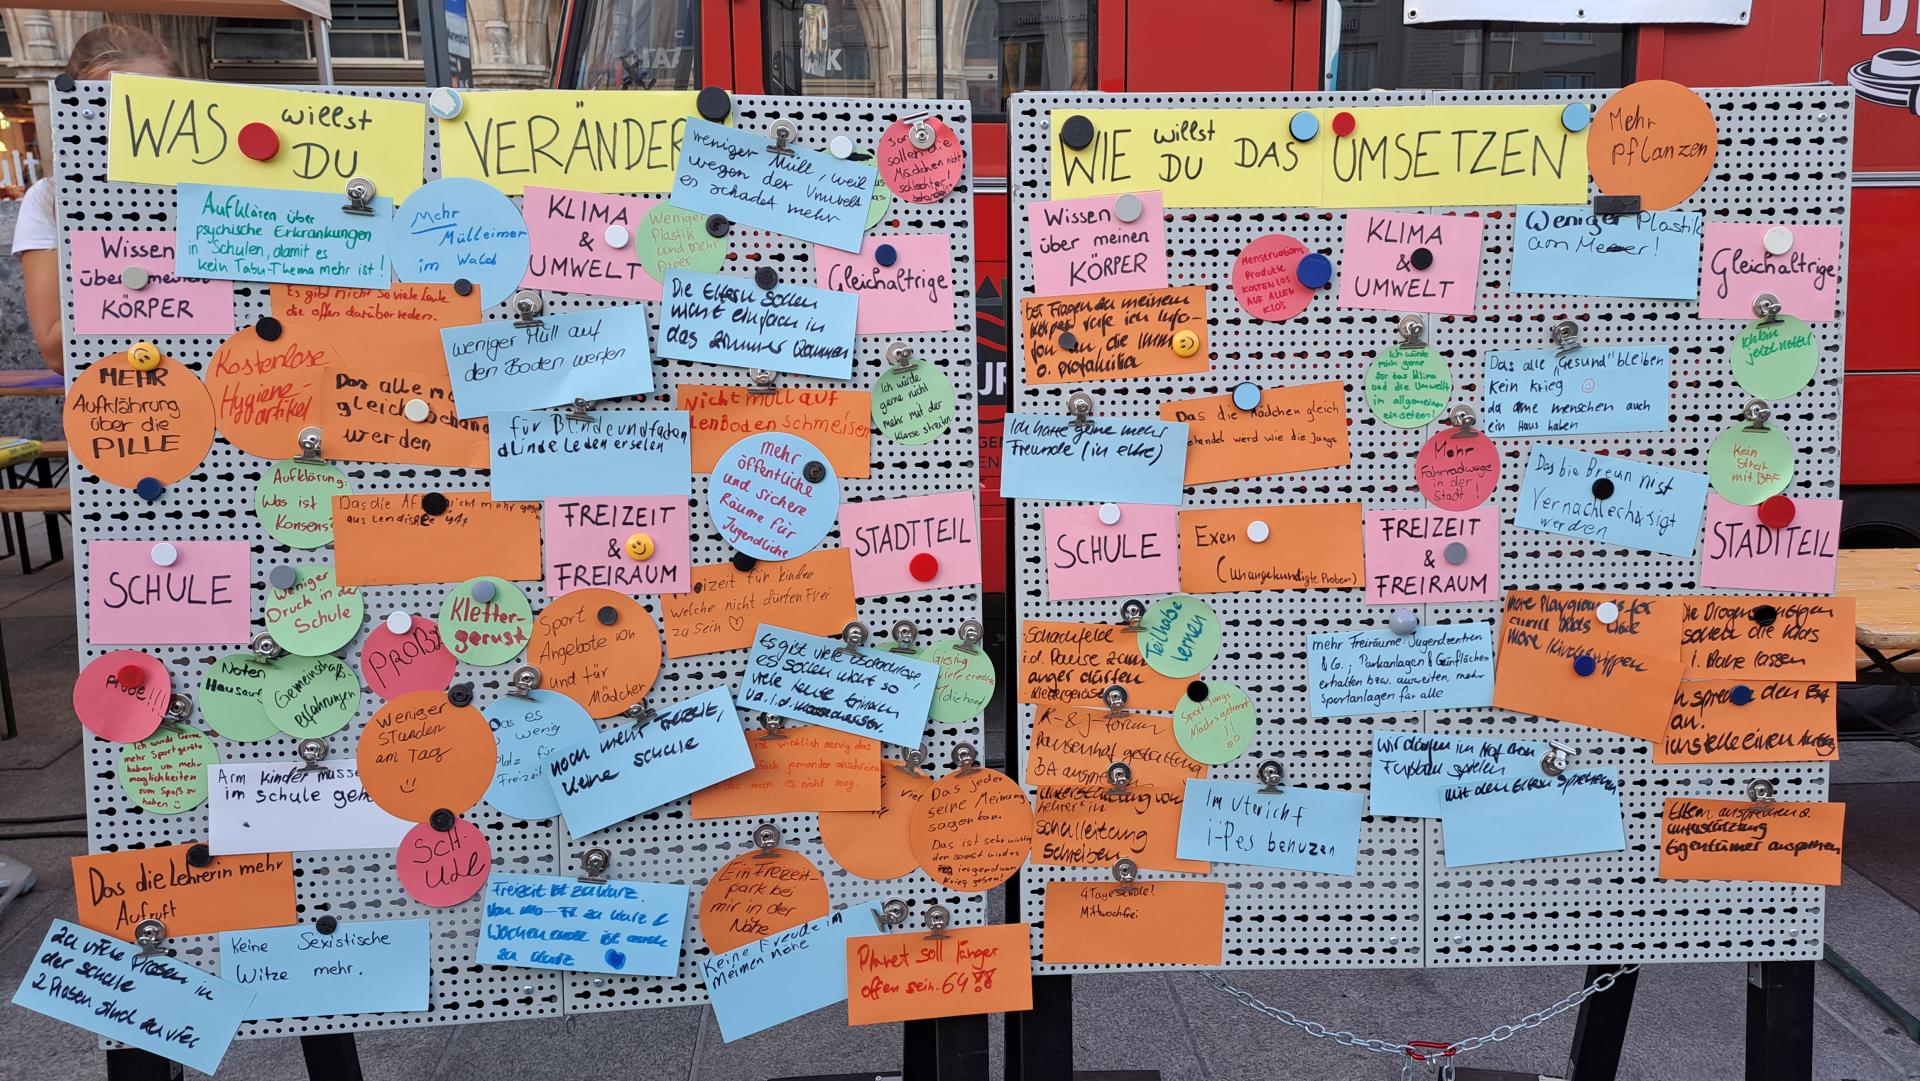 WAS willst DU
VERÄNDER
Aufklären über
psychische Erkrankungen
in Schulen, damit es
kein Tabu-Thema mehr ist!
Mehr
Mülleimer
im Wald
KLIMA
&
UMWELT
Weniger
Plastik
und mehr
Papier
weniger Müll, weil
wegen der Umwelt
es schadet mehr
sollen die
Mädchen nicht
schlechter
Wissen
über meinen
KÖRPER
Es gibt nicht so viele Leute
die offen darüber reden.
weniger Müll auf
den Boden werfen
Die Eltern sollen
nicht einfach in
das zimmer kommen
Gleichaltrige
MEHR
Aufklährung
über die
PILLE
Kostenlose
Hygiene-
artikel
Das alle
gleich
werden
für Blinde und
Nicht müll auf
den Boden Schmeisen
Ich würde
gerne nicht
mehr mit der
Klasse streiten
Aufklärung:
Was ist
Konsens
Das die
nicht mehr
FREIZEIT
&
FREIRAUM
mehr
öffentliche
und sichere
Räume für
Jugendliche
STADTTEIL
SCHULE
Weniger
Druck in der
Schule
Kletter-
gerüst
Sport
Angebote von
und für
Mädchen
für kinder
welche nicht dürfen Frei
zu sein ♡
Noten
Hausauf
Gemeinschafts
erfahrungen
Weniger
stunden
am Tag
Das es
wenig
Platz für
Freizeit
noch mehr Freizeit,
keine schule
Es gibt viele
es sollen nicht so
viele Leute
Ich würde Gerne
mehr Sport geräte
haben um mehr
möglichkeiten
zum Spaß zu
haben
Arm kinder müsse
im schule geh
ist wirklich nervig das
jemanden anschreien
das man es nicht mag.
viel
Das jeder
seine Meinung
sagen kan.
Das ist sehr wichtig
der sonst wird es
irgendwan
Krieg geben!
SCH
ULE
Das die Lehrerin mehr
Aufruft
Ein Freizeit-
park bei
mir in der
Nähe
zu viele Prosen in
der schule
2 Prosen sind zu viel
Keine Sexistische
Witze mehr.
Freizeit ist zu kurz.
Von Mo-Fr zu kurz &
Wochenende ist auch
zu kurz
Keine Freude im
Meinen nähe
Planet soll länger
offen sein. 64
WIE willst DU DAS UMSETZEN
Mehr
Pflanzen
Wissen
über meinen
KÖRPER
Menstruations
Produkte
KOSTENLOS
AUF ALLEN
KLOS
KLIMA
&
UMWELT
Weniger Plastik
am Meeer!
Gleichaltrige
bei Fragen zu meinem
Körper rufe ich Info-
fon an, die IMMA
o. profamilia
Ich würde
mich gerne
für das Klima
und die Umwelt
im allgemeinen
einsetzen!
Das alle "Gesund" bleiben
Kein krieg
da arme menschen auch
ein Haus haben
Ich bin
jetzt netter
Ich hätte gerne mehr
Freunde (in echt)
Das die Mädchen gleich
behandel werd wie die Jungs
Mehr
Fahrradwege
in der
Stadt!
Das bie Breun nist
Vernachlechäsigt
werden
Kein
Streit
mit BFF
SCHULE
Exen
(unangekündigte Proben)
FREIZEIT
&
FREIRAUM
STADTTEIL
Schaufelde
i.d. Pause zum
Teilhabe
lernen
mehr Freiräume: Jugendzentren
& Co.; Parkanlagen & Grünflächen
erhalten bzw. ausweiten, mehr
Sportanlagen für alle
More Playgrounds for
more
Die Drogensüchtigen
sollen die Kids
i. Ruhe lassen
K-&J-forum
Pausenhof gestalten
BA
Sport Jungs
Mädels getrennt
!!
spreche den BA
an.
ich stelle einen Antrag
Unterstützung von
Lehrer*in
schulleitung
schreiben
Im Uterricht
i-Pes benuzen
wir dürfen im Hof
Fußball spielen
mit den Eltern sprechen
Eltern ansprechen o.
Unterstützung
Eigentümer ansprechen
4 Tageschule!
Mittwochfrei